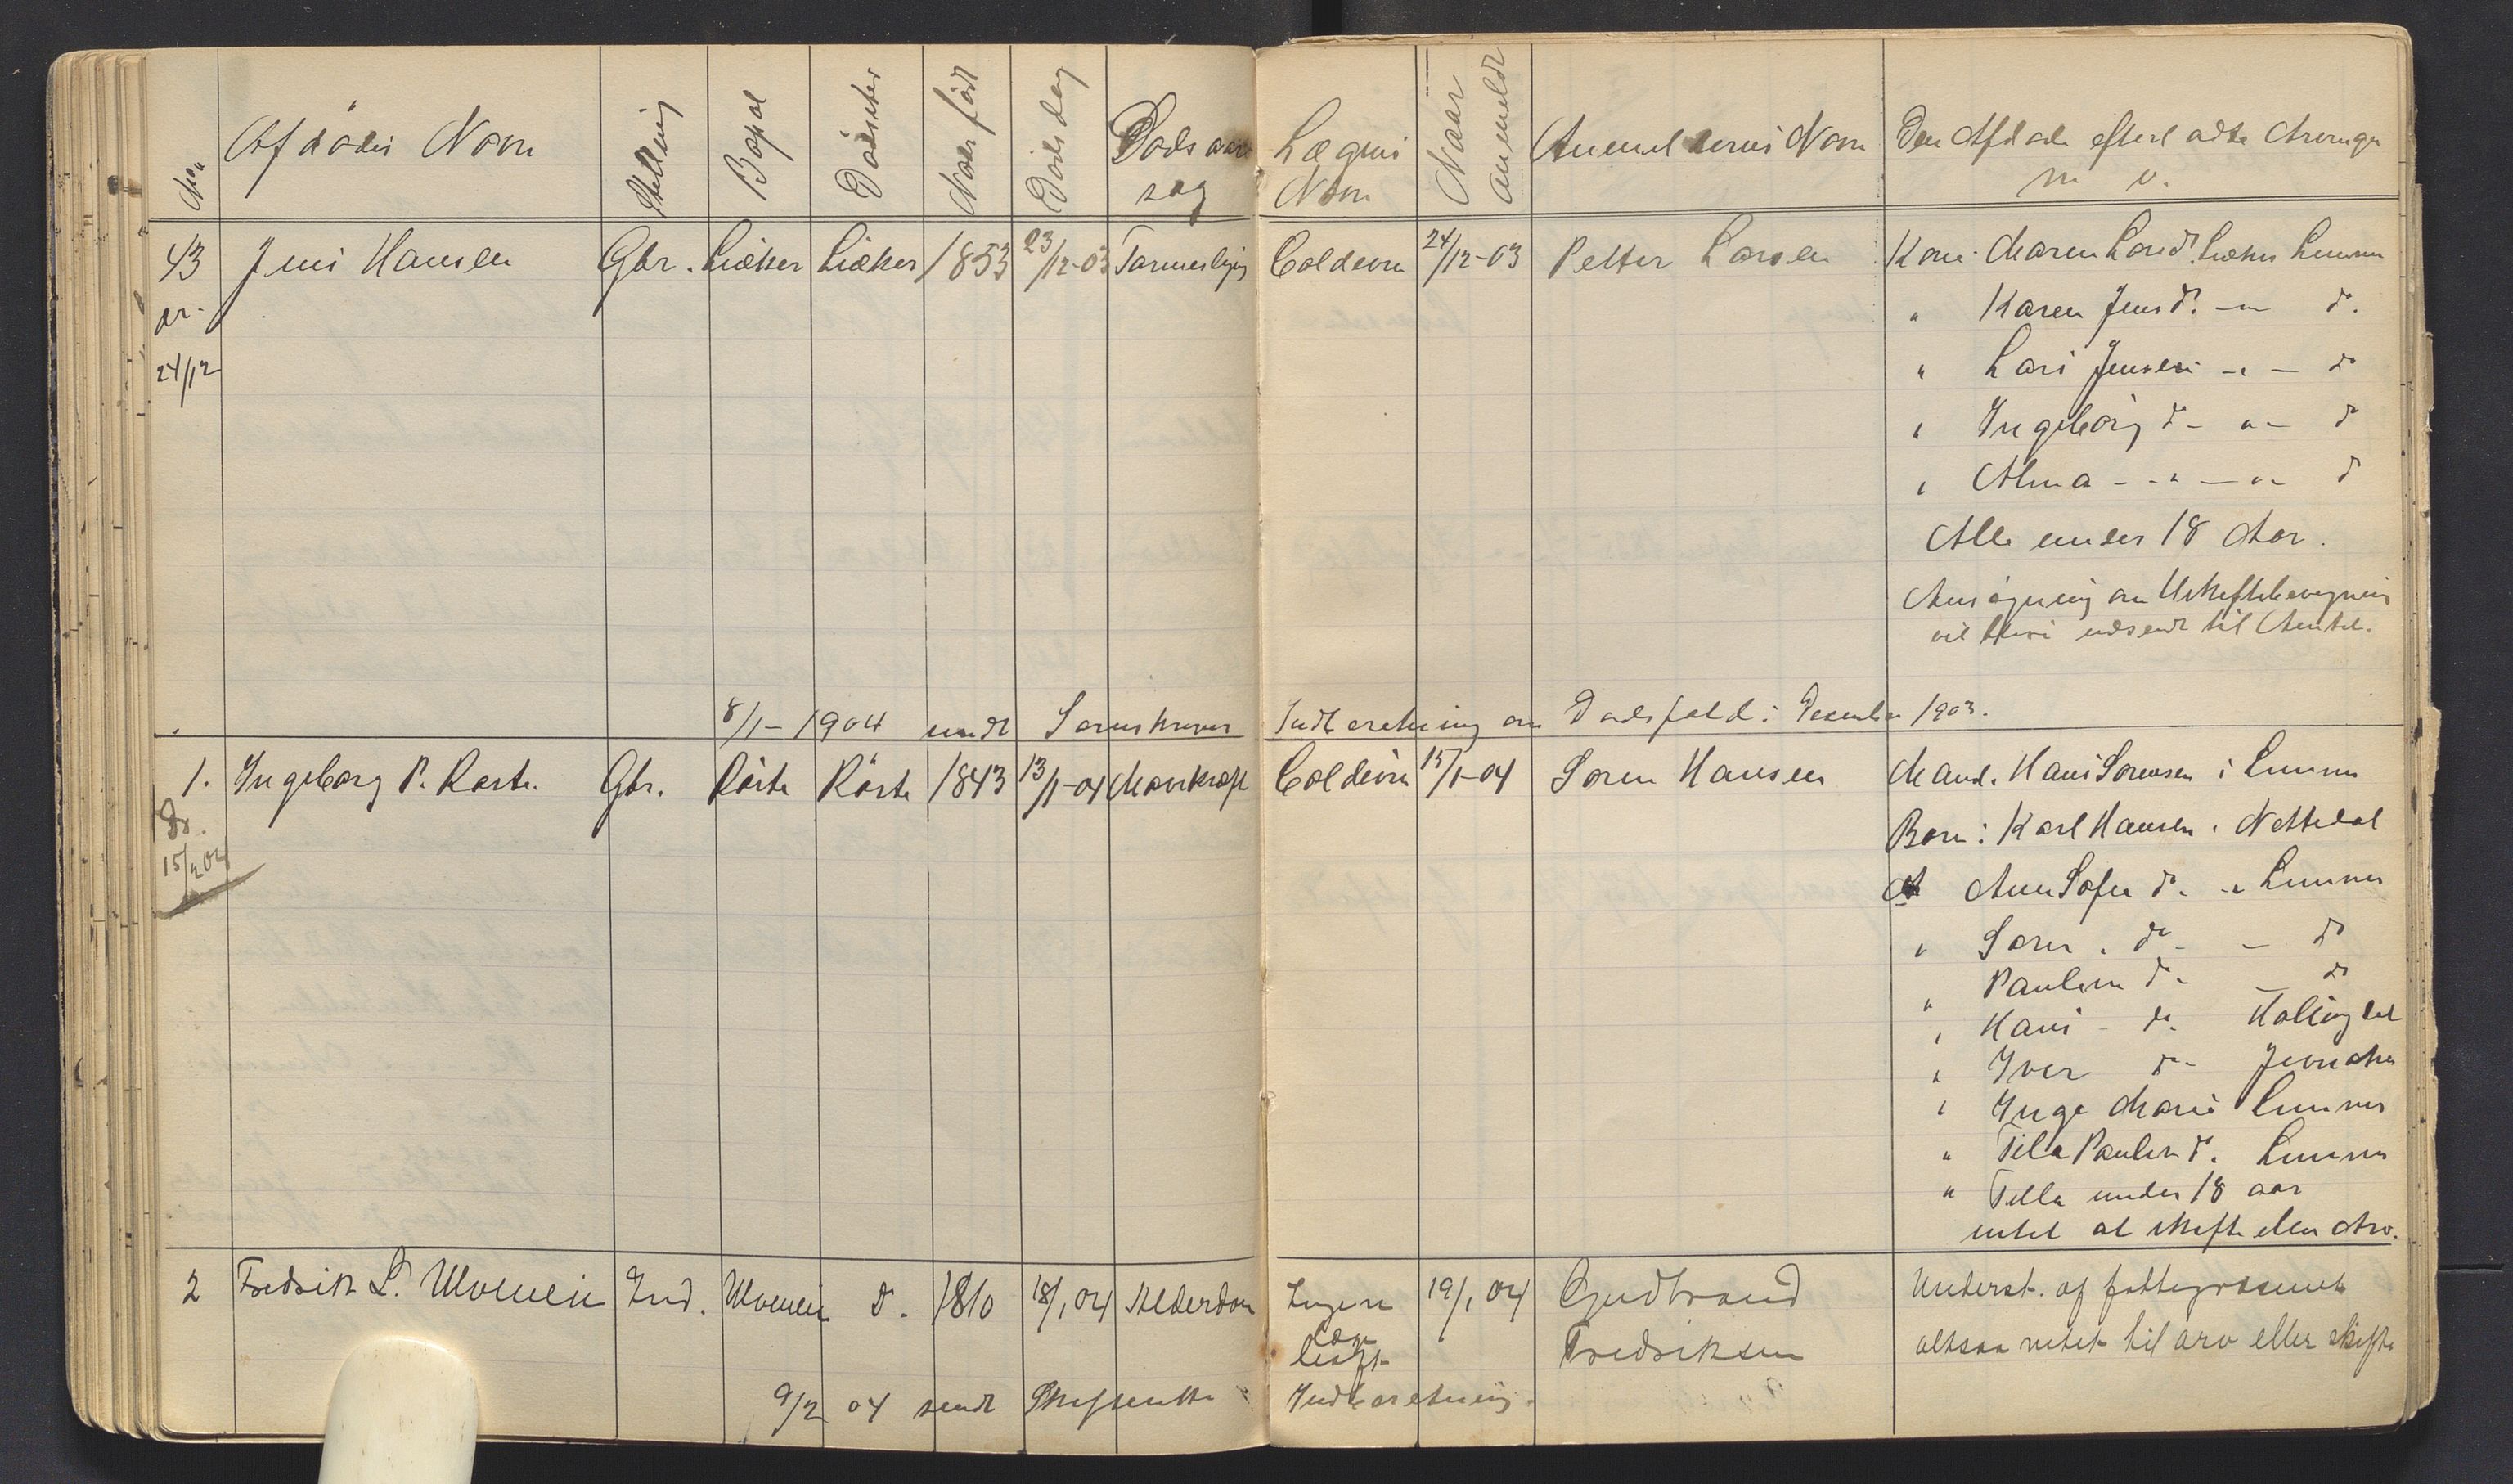 No. Afdødes Navn Stilling Bopæl Dødssted Naar født Dødsdag Dødsaar
sag
Lægens
Navn
Naar
anmeldt
Anmelderens Navn Den Afdødes efterladte Arvinger
m v.
43 Jens Hansen Gbr. Liøker Liøker 1853 23/12-03 Tarmeslyng Coldevin 24/12-03 Petter Larsen Kone: Maren Larsd. Liøker Lunner
" Karen Jensd. -"- do.
24/12
" Lars Jensen -"- do
" Ingeborg do- "- do
" Alma - -"- -"- do
Alle under 18 Aar.
Ansøgning om Uskiftebevegning
vil blive udsendt til Amtet.
8/1-1904 sendt Sorenskriver Indberetning om Dødsfald i Desember 1903.
1. Ingeborg P. Røste. Gbr. Røste Røste 1843 13/1-04 Mavekræft Coldevin 15/1-04 Soren Hansen Mand. Hans Sorensen i Lunner
15/1 04
Børn: Karl Hansen. Nittedal
Ann Sofie do. -" Lunner
" Soren . do - - do
" Pauline do - - do
" Hans - do. Hallingdal
" Iver do- Jevnaker
" Inga Marie Lunner
" Tilla Pauline do. Lunner
" Tilla under 18 aar
intet at skifte eller Arv.
2 Fredrik L. Ulvelien Ind. do. 1810 18/1 04 Alderdom Ingen
læge
19/1 04 Gudbrand
Fredriksen
Underst. af fattigvæsenet
altsaa intet til arv eller skifte
9/2 04 sendt Skifteretten Indberetning.